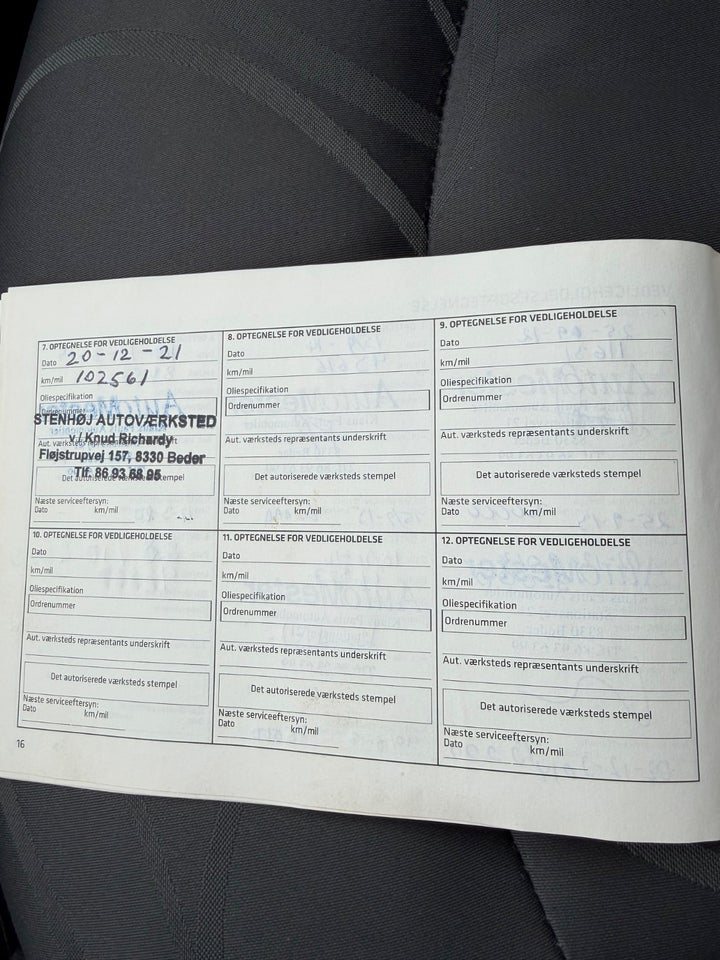 7. OPTEGNELSE FOR VEDLIGEHOLDELSE
Dato 20-12-21
km/mil 102561
Oliespecifikation
Ordrenummer
STENHØJ AUTOVÆRKSTED
v/ Knud Richardy
Aut. værksteds repræsentants underskrift
Fløjstrupvej 157, 8330 Beder
Tlf. 86 93 68 95
Det autoriserede værksteds stempel
Næste serviceeftersyn:
Dato km/mil
8. OPTEGNELSE FOR VEDLIGEHOLDELSE
Dato
km/mil
Oliespecifikation
Ordrenummer
Aut. værksteds repræsentants underskrift
Det autoriserede værksteds stempel
Næste serviceeftersyn:
Dato km/mil
9. OPTEGNELSE FOR VEDLIGEHOLDELSE
Dato
km/mil
Oliespecifikation
Ordrenummer
Aut. værksteds repræsentants underskrift
Det autoriserede værksteds stempel
Næste serviceeftersyn:
Dato km/mil
10. OPTEGNELSE FOR VEDLIGEHOLDELSE
Dato
km/mil
Oliespecifikation
Ordrenummer
Aut. værksteds repræsentants underskrift
Det autoriserede værksteds stempel
Næste serviceeftersyn:
Dato km/mil
11. OPTEGNELSE FOR VEDLIGEHOLDELSE
Dato
km/mil
Oliespecifikation
Ordrenummer
Aut. værksteds repræsentants underskrift
Det autoriserede værksteds stempel
Næste serviceeftersyn:
Dato km/mil
12. OPTEGNELSE FOR VEDLIGEHOLDELSE
Dato
km/mil
Oliespecifikation
Ordrenummer
Aut. værksteds repræsentants underskrift
Det autoriserede værksteds stempel
Næste serviceeftersyn:
Dato km/mil
16